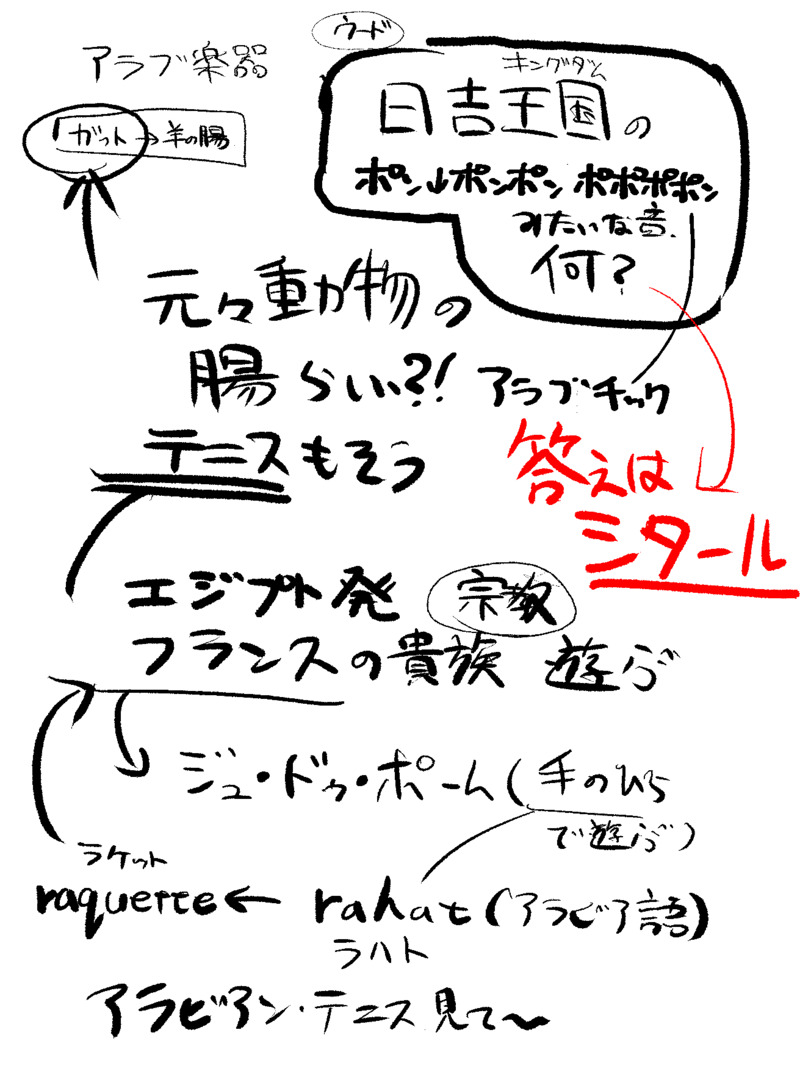 アラブ楽器
ウード
ガット→羊の腸
キングダム
日吉王国の
ポン↓ポンポン ポポポポン
みたいな音.
何?
元々動物の
腸らしい?!
アラブチック
テニスもそう
答えは
シタール
エジプト発 宗教
フランスの貴族 遊ぶ
ジュ・ドゥ・ポーム(手のひら
で遊ぶ)
ラケット
raquette ← rahat(アラビア語)
ラハト
アラビアン・テニス見て〜